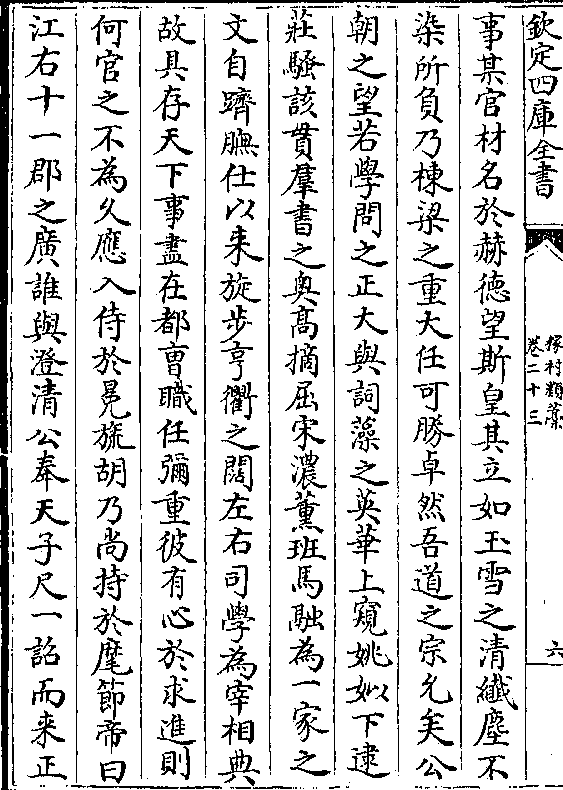 欽定四庫全書
稼村類藁
卷二十三
六
事某官材名於赫德望斯皇其立如玉雪之清纎塵不
染所負乃棟梁之重大任可勝卓然吾道之宗允矣公
朝之望若學問之正大與詞藻之英華上窺姚姒下逮
莊騷該貫羣書之奥髙摘屈宋濃薰班馬融為一家之
文自躋膴仕以来旋步亨衢之闊左右司學為宰相典
故具存天下事盡在都曺職任彌重彼有心於求進則
何官之不為久應入侍於冕旒胡乃尚持於麾節帝曰
江右十一郡之廣誰與澄清公奉天子尺一詔而来正